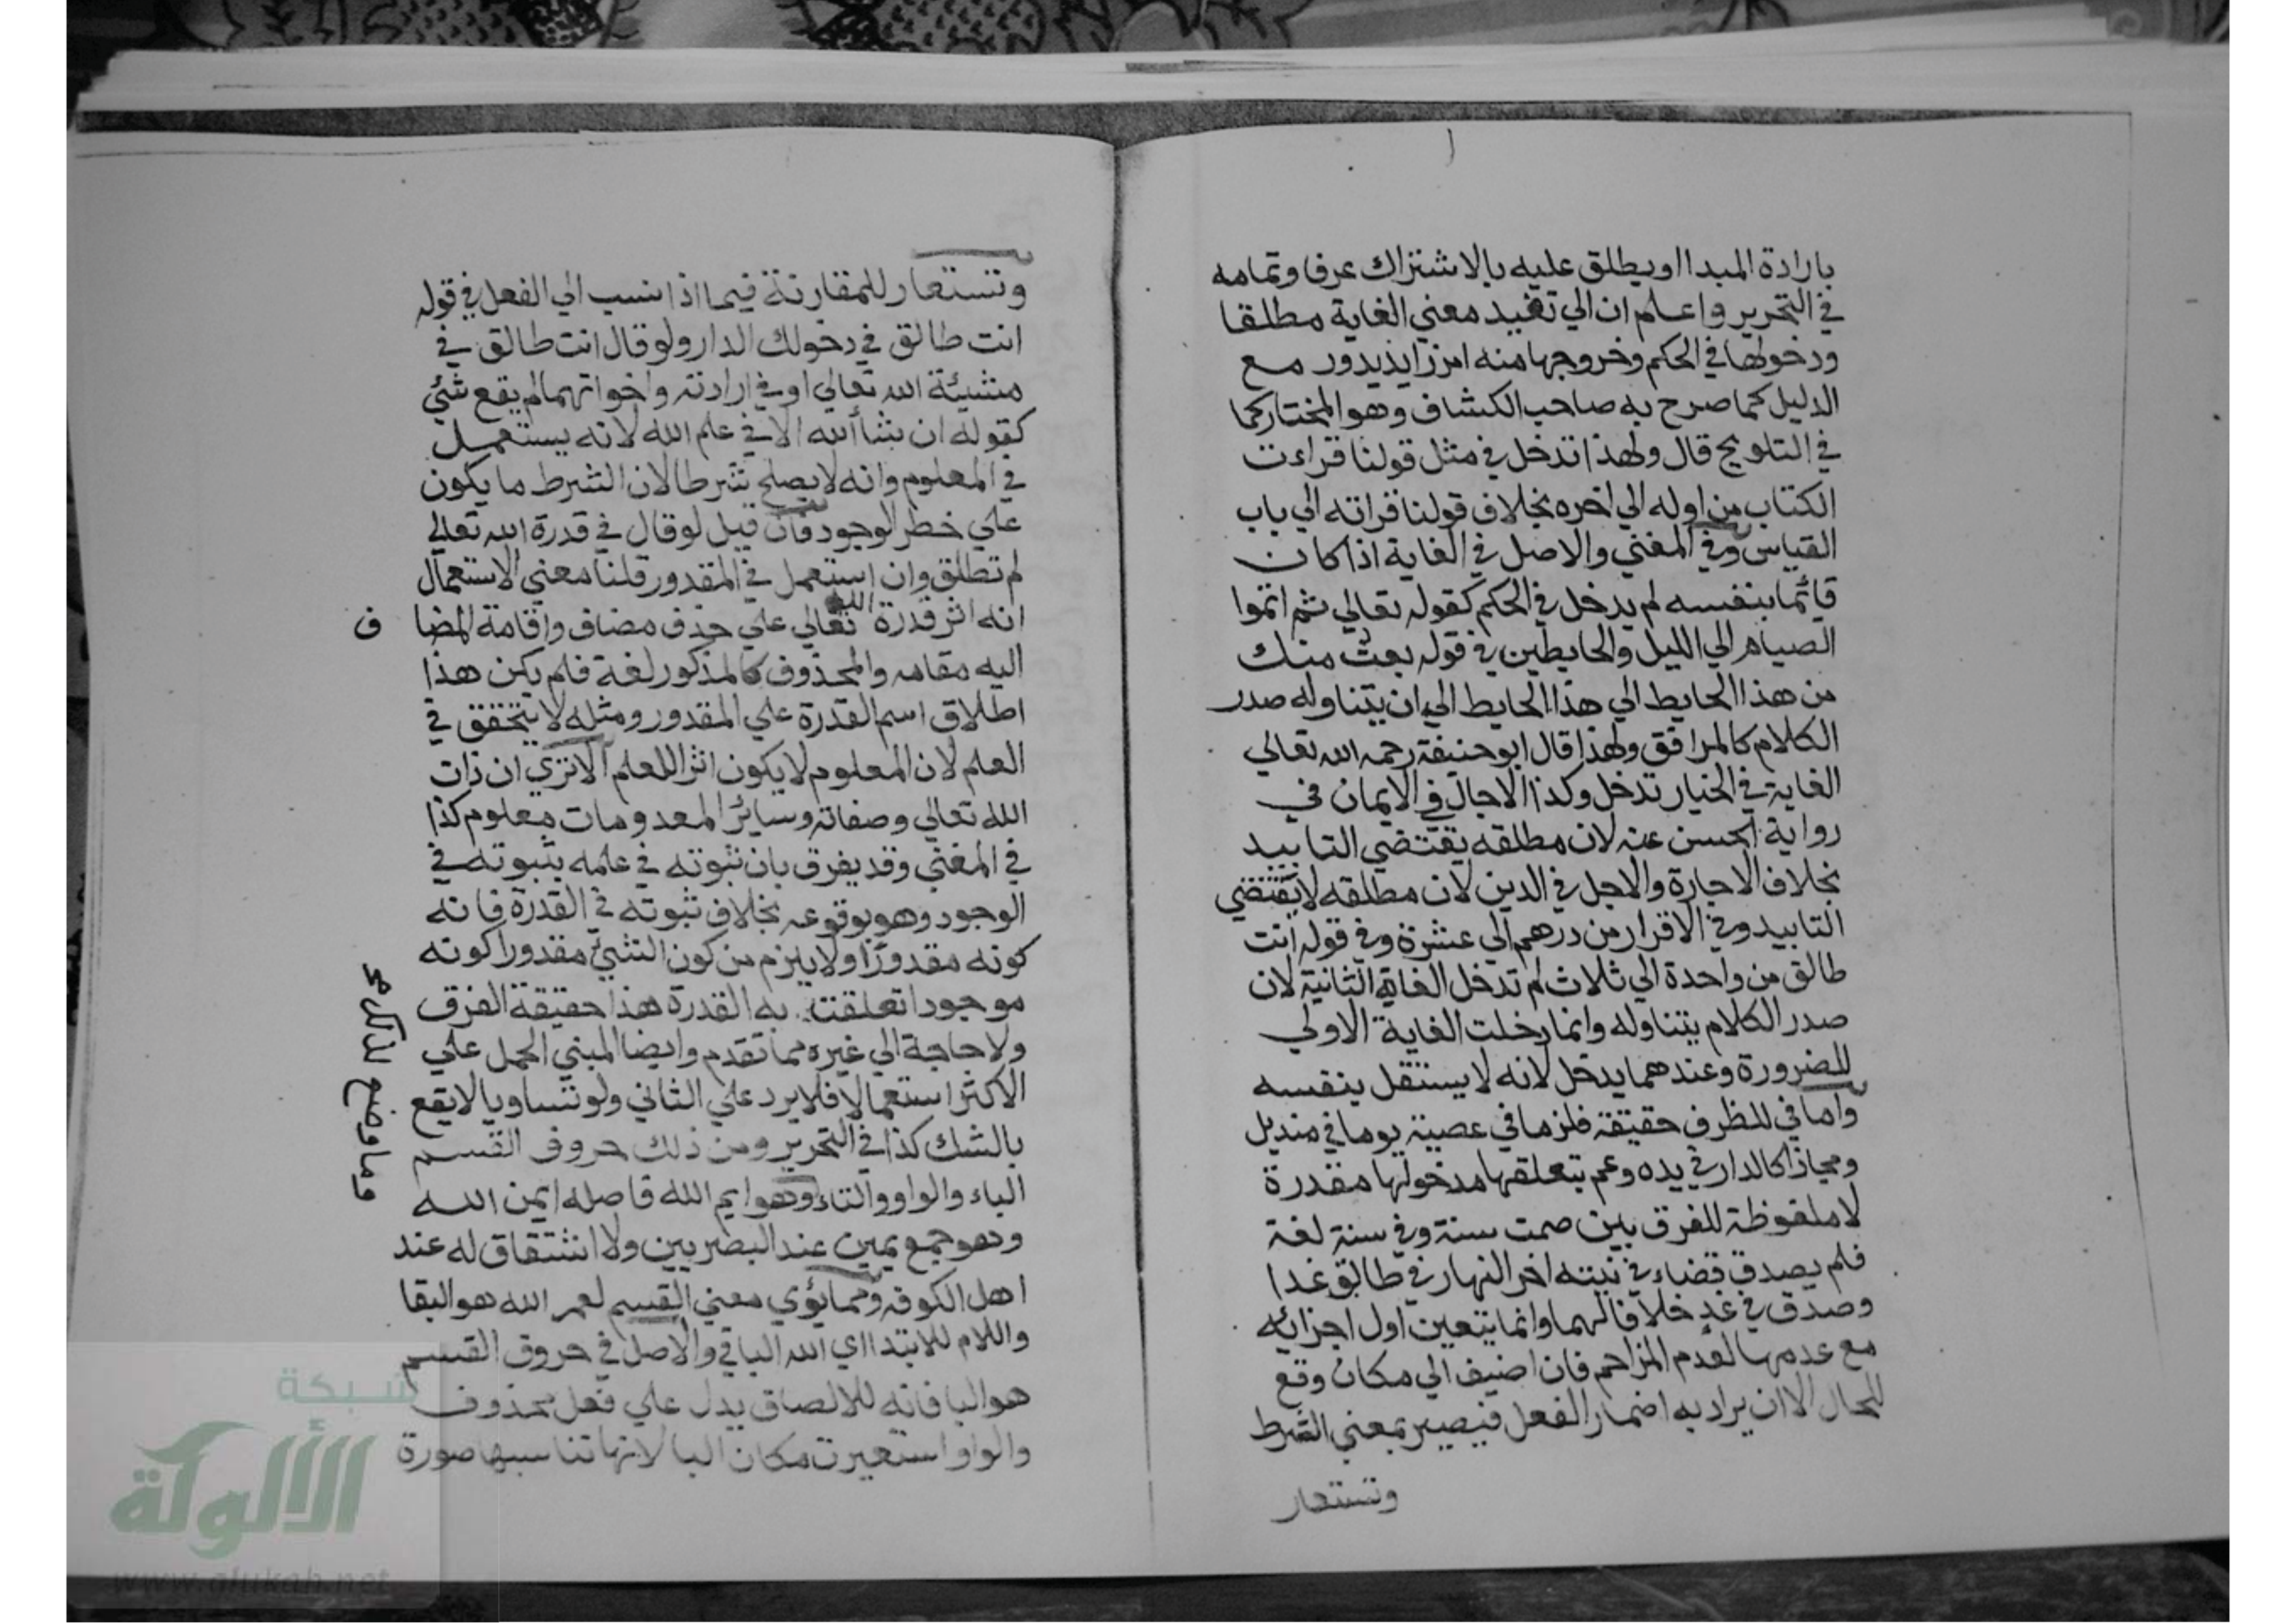 بارادة المبدا او يطلق عليه بالاشتراك عرفا وتمامه
في التحرير واعلم ان الي تفيد معني الغاية مطلقا
ودخولها في الحكم وخروجها منه امر زايد يدور مع
الدليل كما صرح به صاحب الكشاف وهو المختار كما
في التلويح قال ولهذا تدخل في مثل قولنا قراءت
الكتاب من اوله الي اخره بخلاف قولنا قراته الي باب
القياس وفي المغني والاصل في الغاية اذا كان
قائما بنفسه لم يدخل في الحكم كقوله تعالي ثم اتموا
الصيام الي الليل والحايطين في قوله بعت منك
من هذا الحايط الي هذا الحايط الي ان يتناوله صدر
الكلام كالمرافق ولهذا قال ابو حنيفة رحمه الله تعالي
الغاية في الخيار تدخل وكذا الاجال في الايمان في
رواية الحسن عنه لان مطلقه يقتضي التابيد
بخلاف الاجارة والاجل في الدين لان مطلقه لا يقتضي
التابيد وفي الاقرار من درهم الي عشرة وفي قوله انت
طالق من واحدة الي ثلاث لم تدخل الغاية الثانية لان
صدر الكلام يتناوله وانما دخلت الغاية الاولي
للضرورة وعندهما يدخل لانه لا يستقل بنفسه
واما في للظرف حقيقة فلزما في غصبته يوما في منديل
ومجازا كالدار في يده وعم بتعلقها مدخولها مقدرة
لا ملفوظة للفرق بين صمت سنة وفي سنة لغة
فلم يصدق قضاء في نيته اخر النهار في طالق غدا
وصدق في غد خلافا لهما وانما يتعين اول اجزائه
مع عدمها لعدم المزاحم فان اضيف الي مكان وقع
للحال الا ان يراد به اضمار الفعل فيصير بمعني الشرط
وتستعار
وتستعار للمقارنة فيما اذا نسب الي الفعل في قوله
انت طالق في دخولك الدار ولو قال انت طالق في
مشيئة الله تعالي او في ارادته واخواتهما لم يقع شئ
كقوله ان شأ الله الا في علم الله لانه يستعمل
في المعلوم وانه لا يصلح شرطا لان الشرط ما يكون
علي خطر الوجود فان قيل لو قال في قدرة الله تعالي
لم تطلق وان استعمل في المقدور قلنا معني الاستعمال
انه اثر قدرة الله تعالي علي حذف مضاف واقامة المضا ف
اليه مقامه والمحذوف كالمذكور لغة فلم يكن هذا
اطلاق اسم القدرة علي المقدور ومثله لا يتحقق في
العلم لان المعلوم لا يكون اثرا للعلم الا تري ان ذات
الله تعالي وصفاته وسائر المعدومات معلوم كذا
في المغني وقد يفرق بان ثبوته في علمه بثبوته في
الوجود وهو بوقوعه بخلاف ثبوته في القدرة فانه
كونه مقدورا ولا يلزم من كون الشئ مقدورا كونه
موجودا تعلقت به القدرة هذا حقيقة الفرق
ولا حاجة الي غيره مما تقدم وايضا المبني الحمل علي
الاكثر استعمالا فلا يرد علي الثاني ولو تساويا لا يقع
بالشك كذا في التحرير ومن ذلك حروف القسم
الباء والواو والتاء وهو ايم الله فاصله ايمن الله
وما وضع لذلك
وهو جمع يمين عند البصريين ولا اشتقاق له عند
اهل الكوفة ومما يؤدي معني القسم لعمر الله هو البقا
واللام للابتدا اي الله الباقي والاصل في حروف القسم
هو البا فانه للالصاق يدل علي فعل محذوف
والواو استعيرت مكان البا لانها تناسبها صورة
شبكة
الألوكة
www.alukah.net